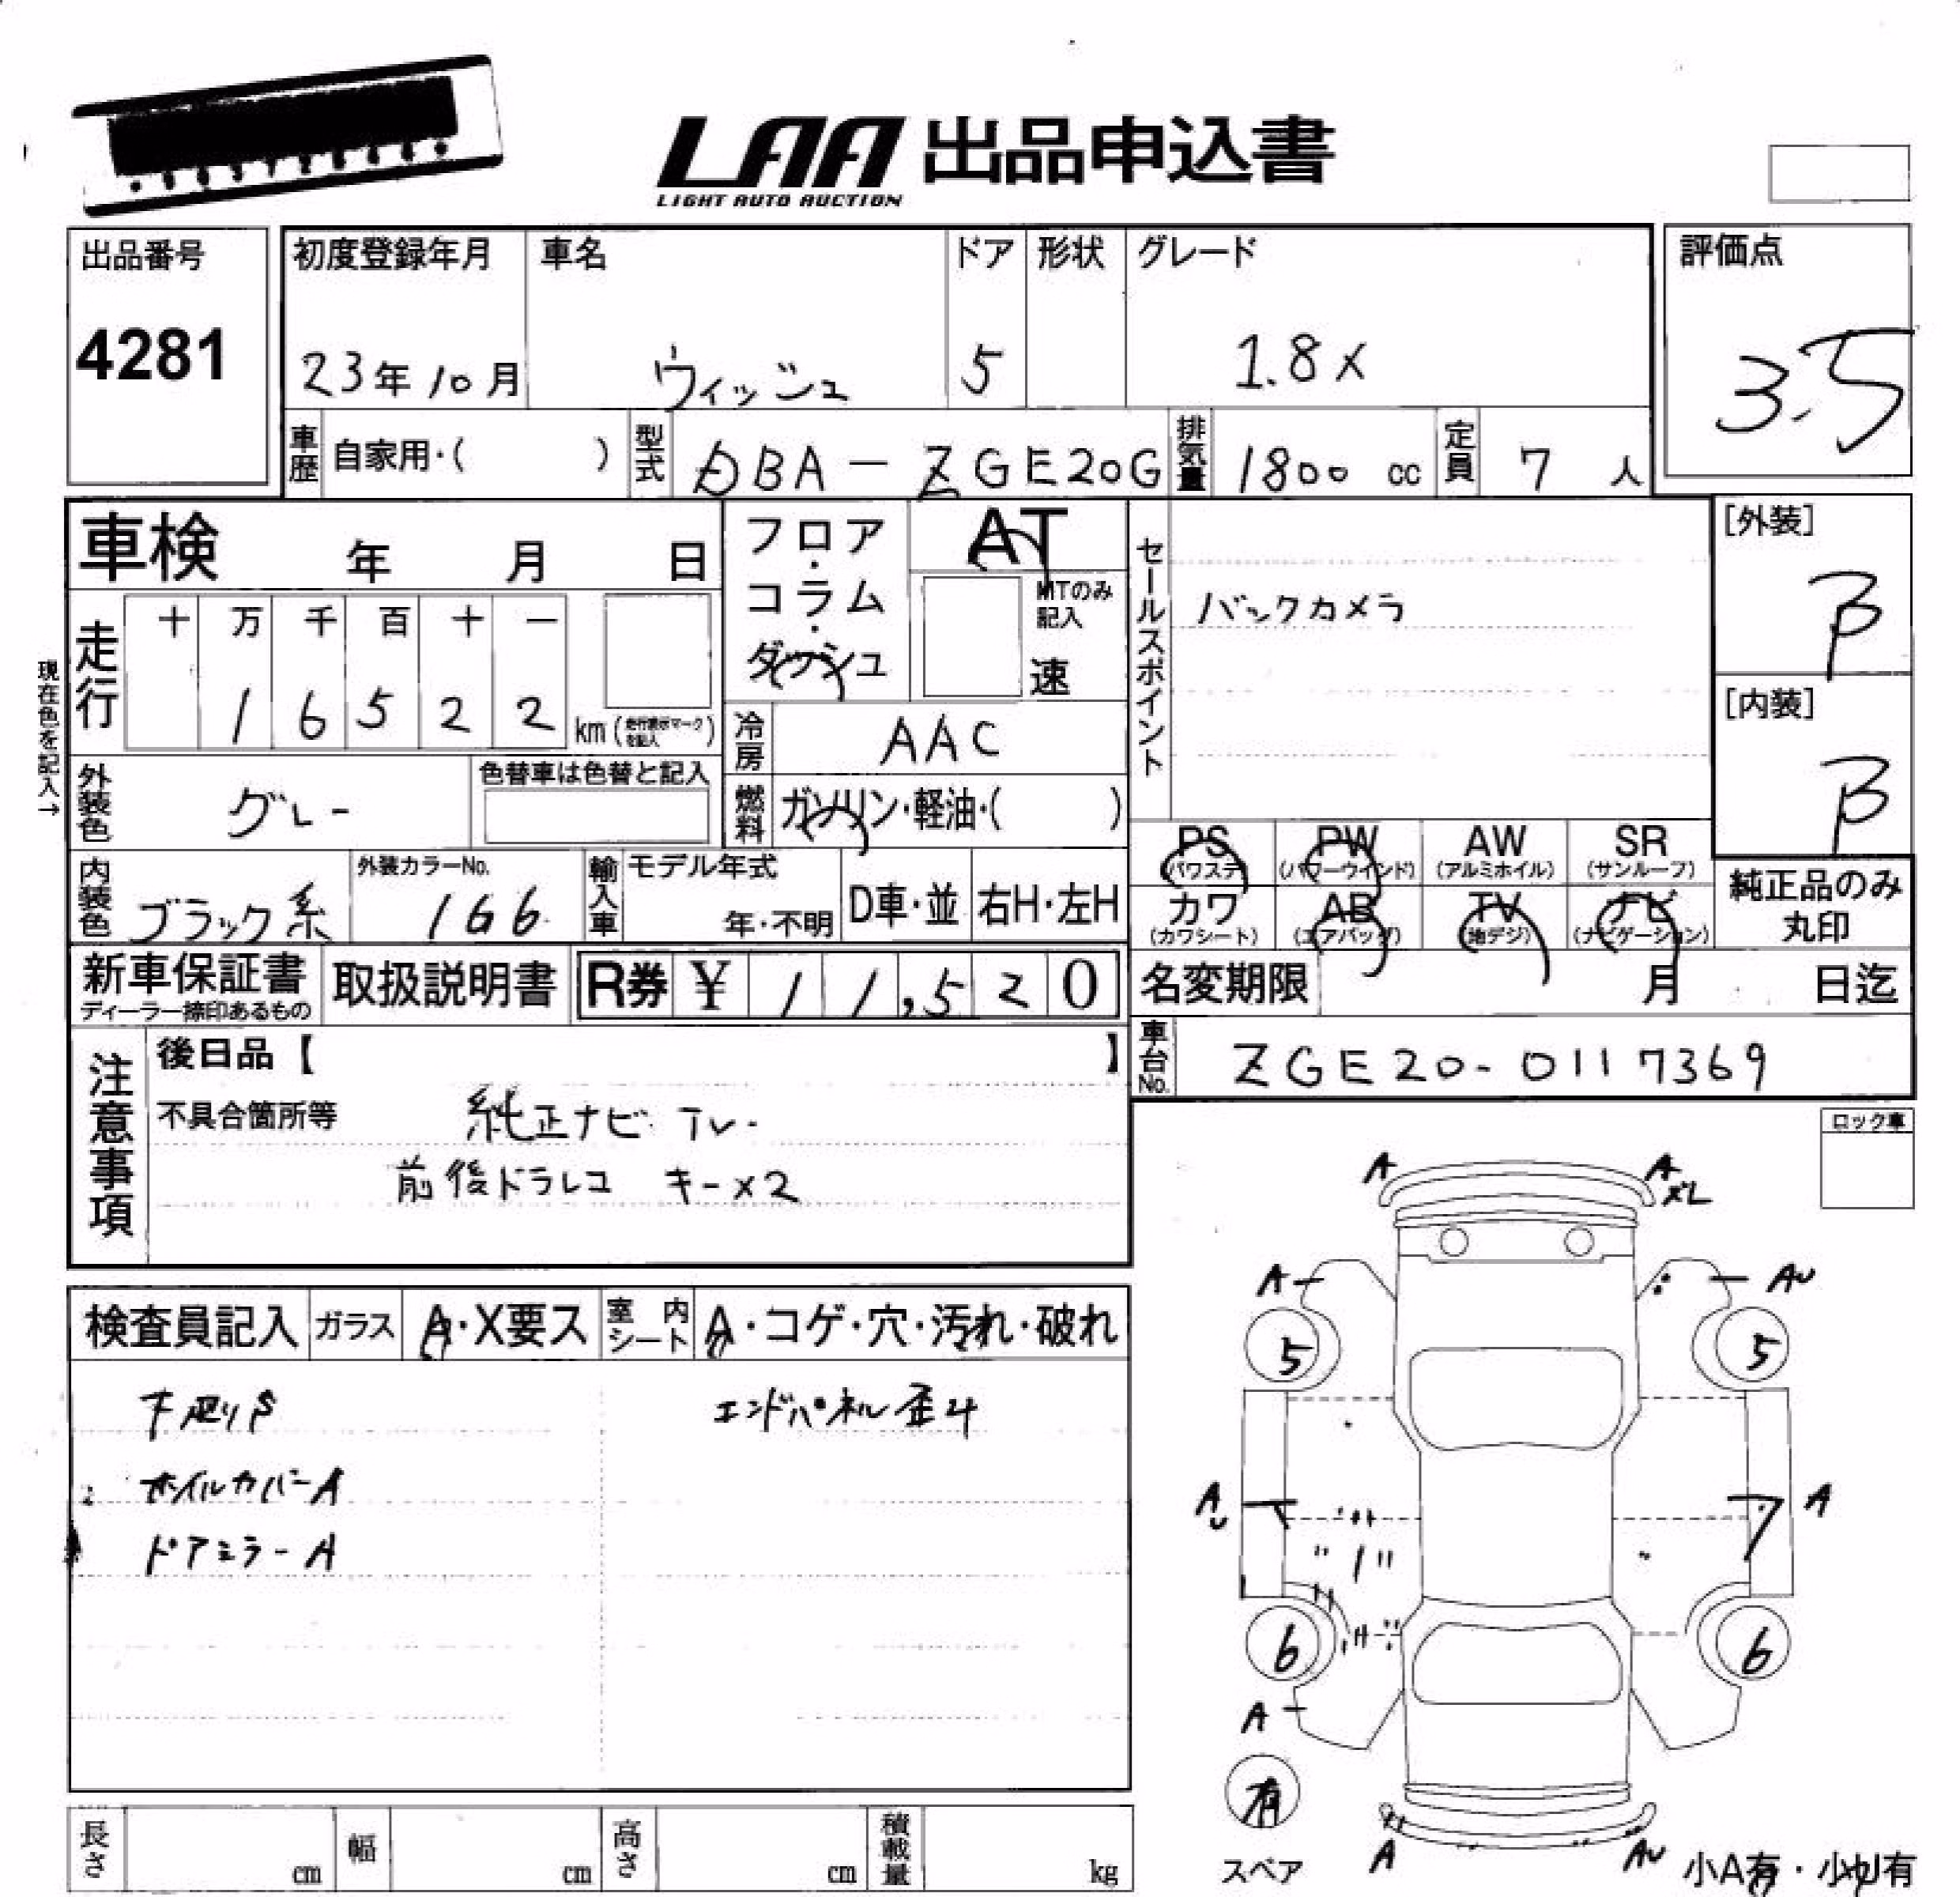 LAA 出品申込書
LIGHT AUTO AUCTION
出品番号
4281
初度登録年月
23年10月
車名
ウィッシュ
ドア
5
形状
グレード
1.8X
評価点
3.5
車歴 自家用・( )
型式 DBA-ZGE20G
排気量 1800 cc
定員 7 人
車検 年 月 日
フロア・コラム・ダッシュ
AT
MTのみ記入
速
セールスポイント
バックカメラ
[外装]
B
[内装]
B
現在色を記入→
走行
十 万 千 百 十 一
1 6 5 2 2
km(走行表示マークを記入)
冷房 AAC
外装色 グレー
色替車は色替と記入
燃料 ガソリン・軽油・( )
PS (パワステ)
PW (パワーウインド)
AW (アルミホイル)
SR (サンルーフ)
カワ (カワシート)
AB (エアバッグ)
TV (地デジ)
ナビ (ナビゲーション)
純正品のみ丸印
内装色 ブラック系
外装カラーNo.
166
輸入車
モデル年式
年・不明
D車・並
右H・左H
新車保証書
ディーラー捺印あるもの
取扱説明書
R券 ¥ 11,520
名変期限 月 日迄
車台No. ZGE20-0117369
注意事項
後日品【 】
不具合箇所等
純正ナビ TV
前後ドラレコ キー×2
ロック車
検査員記入
ガラス A・X要ス
室内シート A・コゲ・穴・汚れ・破れ
下廻りS
エンドパネル歪み
ホイルカバーA
ドアミラーA
A
A
ズレ
A
AU
5
5
AU
A
6
6
A
有
スペア
A
AU
小A有・小U有
長さ cm
幅 cm
高さ cm
積載量 kg